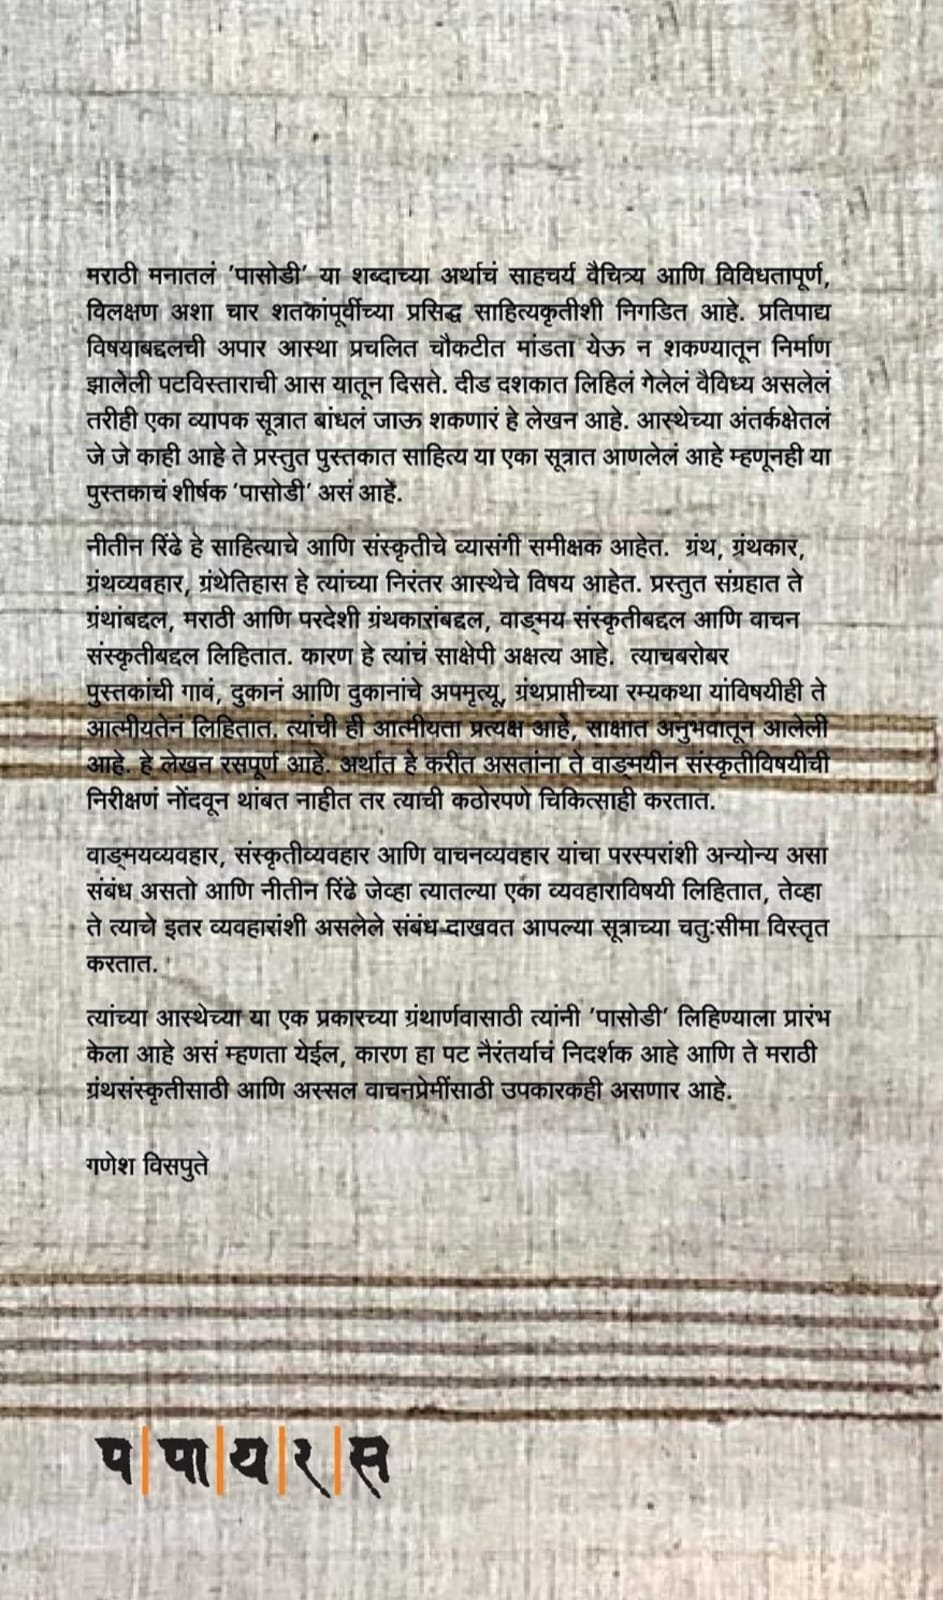 मराठी मनातलं 'पासोडी' या शब्दाच्या अर्थाचं साहचर्य वैचित्र्य आणि विविधतापूर्ण,
विलक्षण अशा चार शतकांपूर्वीच्या प्रसिद्ध साहित्यकृतीशी निगडित आहे. प्रतिपाद्य
विषयाबद्दलची अपार आस्था प्रचलित चौकटीत मांडता येऊ न शकण्यातून निर्माण
झालेली पटविस्ताराची आस यातून दिसते. दीड दशकात लिहिलं गेलेलं वैविध्य असलेलं
तरीही एका व्यापक सूत्रात बांधलं जाऊ शकणारं हे लेखन आहे. आस्थेच्या अंतर्कक्षेतलं
जे जे काही आहे ते प्रस्तुत पुस्तकात साहित्य या एका सूत्रात आणलेलं आहे म्हणूनही या
पुस्तकाचं शीर्षक 'पासोडी' असं आहे.
नीतीन रिंढे हे साहित्याचे आणि संस्कृतीचे व्यासंगी समीक्षक आहेत. ग्रंथ, ग्रंथकार,
ग्रंथव्यवहार, ग्रंथेतिहास हे त्यांच्या निरंतर आस्थेचे विषय आहेत. प्रस्तुत संग्रहात ते
ग्रंथांबद्दल, मराठी आणि परदेशी ग्रंथकारांबद्दल, वाङ्मय संस्कृतीबद्दल आणि वाचन
संस्कृतीबद्दल लिहितात. कारण हे त्यांचं साक्षेपी अक्षत्य आहे. त्याचबरोबर
पुस्तकांची गावं, दुकानं आणि दुकानांचे अपमृत्यू, ग्रंथप्राप्तीच्या रम्यकथा यांविषयीही ते
आत्मीयतेनं लिहितात. त्यांची ही आत्मीयता प्रत्यक्ष आहे, साक्षात अनुभवातून आलेली
आहे. हे लेखन रसपूर्ण आहे. अर्थात हे करीत असतांना ते वाङ्मयीन संस्कृतीविषयीची
निरीक्षणं नोंदवून थांबत नाहीत तर त्याची कठोरपणे चिकित्साही करतात.
वाङ्मयव्यवहार, संस्कृतीव्यवहार आणि वाचनव्यवहार यांचा परस्परांशी अन्योन्य असा
संबंध असतो आणि नीतीन रिंढे जेव्हा त्यातल्या एका व्यवहाराविषयी लिहितात, तेव्हा
ते त्याचे इतर व्यवहारांशी असलेले संबंध दाखवत आपल्या सूत्राच्या चतुःसीमा विस्तृत
करतात.
त्यांच्या आस्थेच्या या एक प्रकारच्या ग्रंथार्णवासाठी त्यांनी 'पासोडी' लिहिण्याला प्रारंभ
केला आहे असं म्हणता येईल, कारण हा पट नैरंतर्याचं निदर्शक आहे आणि ते मराठी
ग्रंथसंस्कृतीसाठी आणि अस्सल वाचनप्रेमींसाठी उपकारकही असणार आहे.
गणेश विसपुते
प|पा|य|र|स